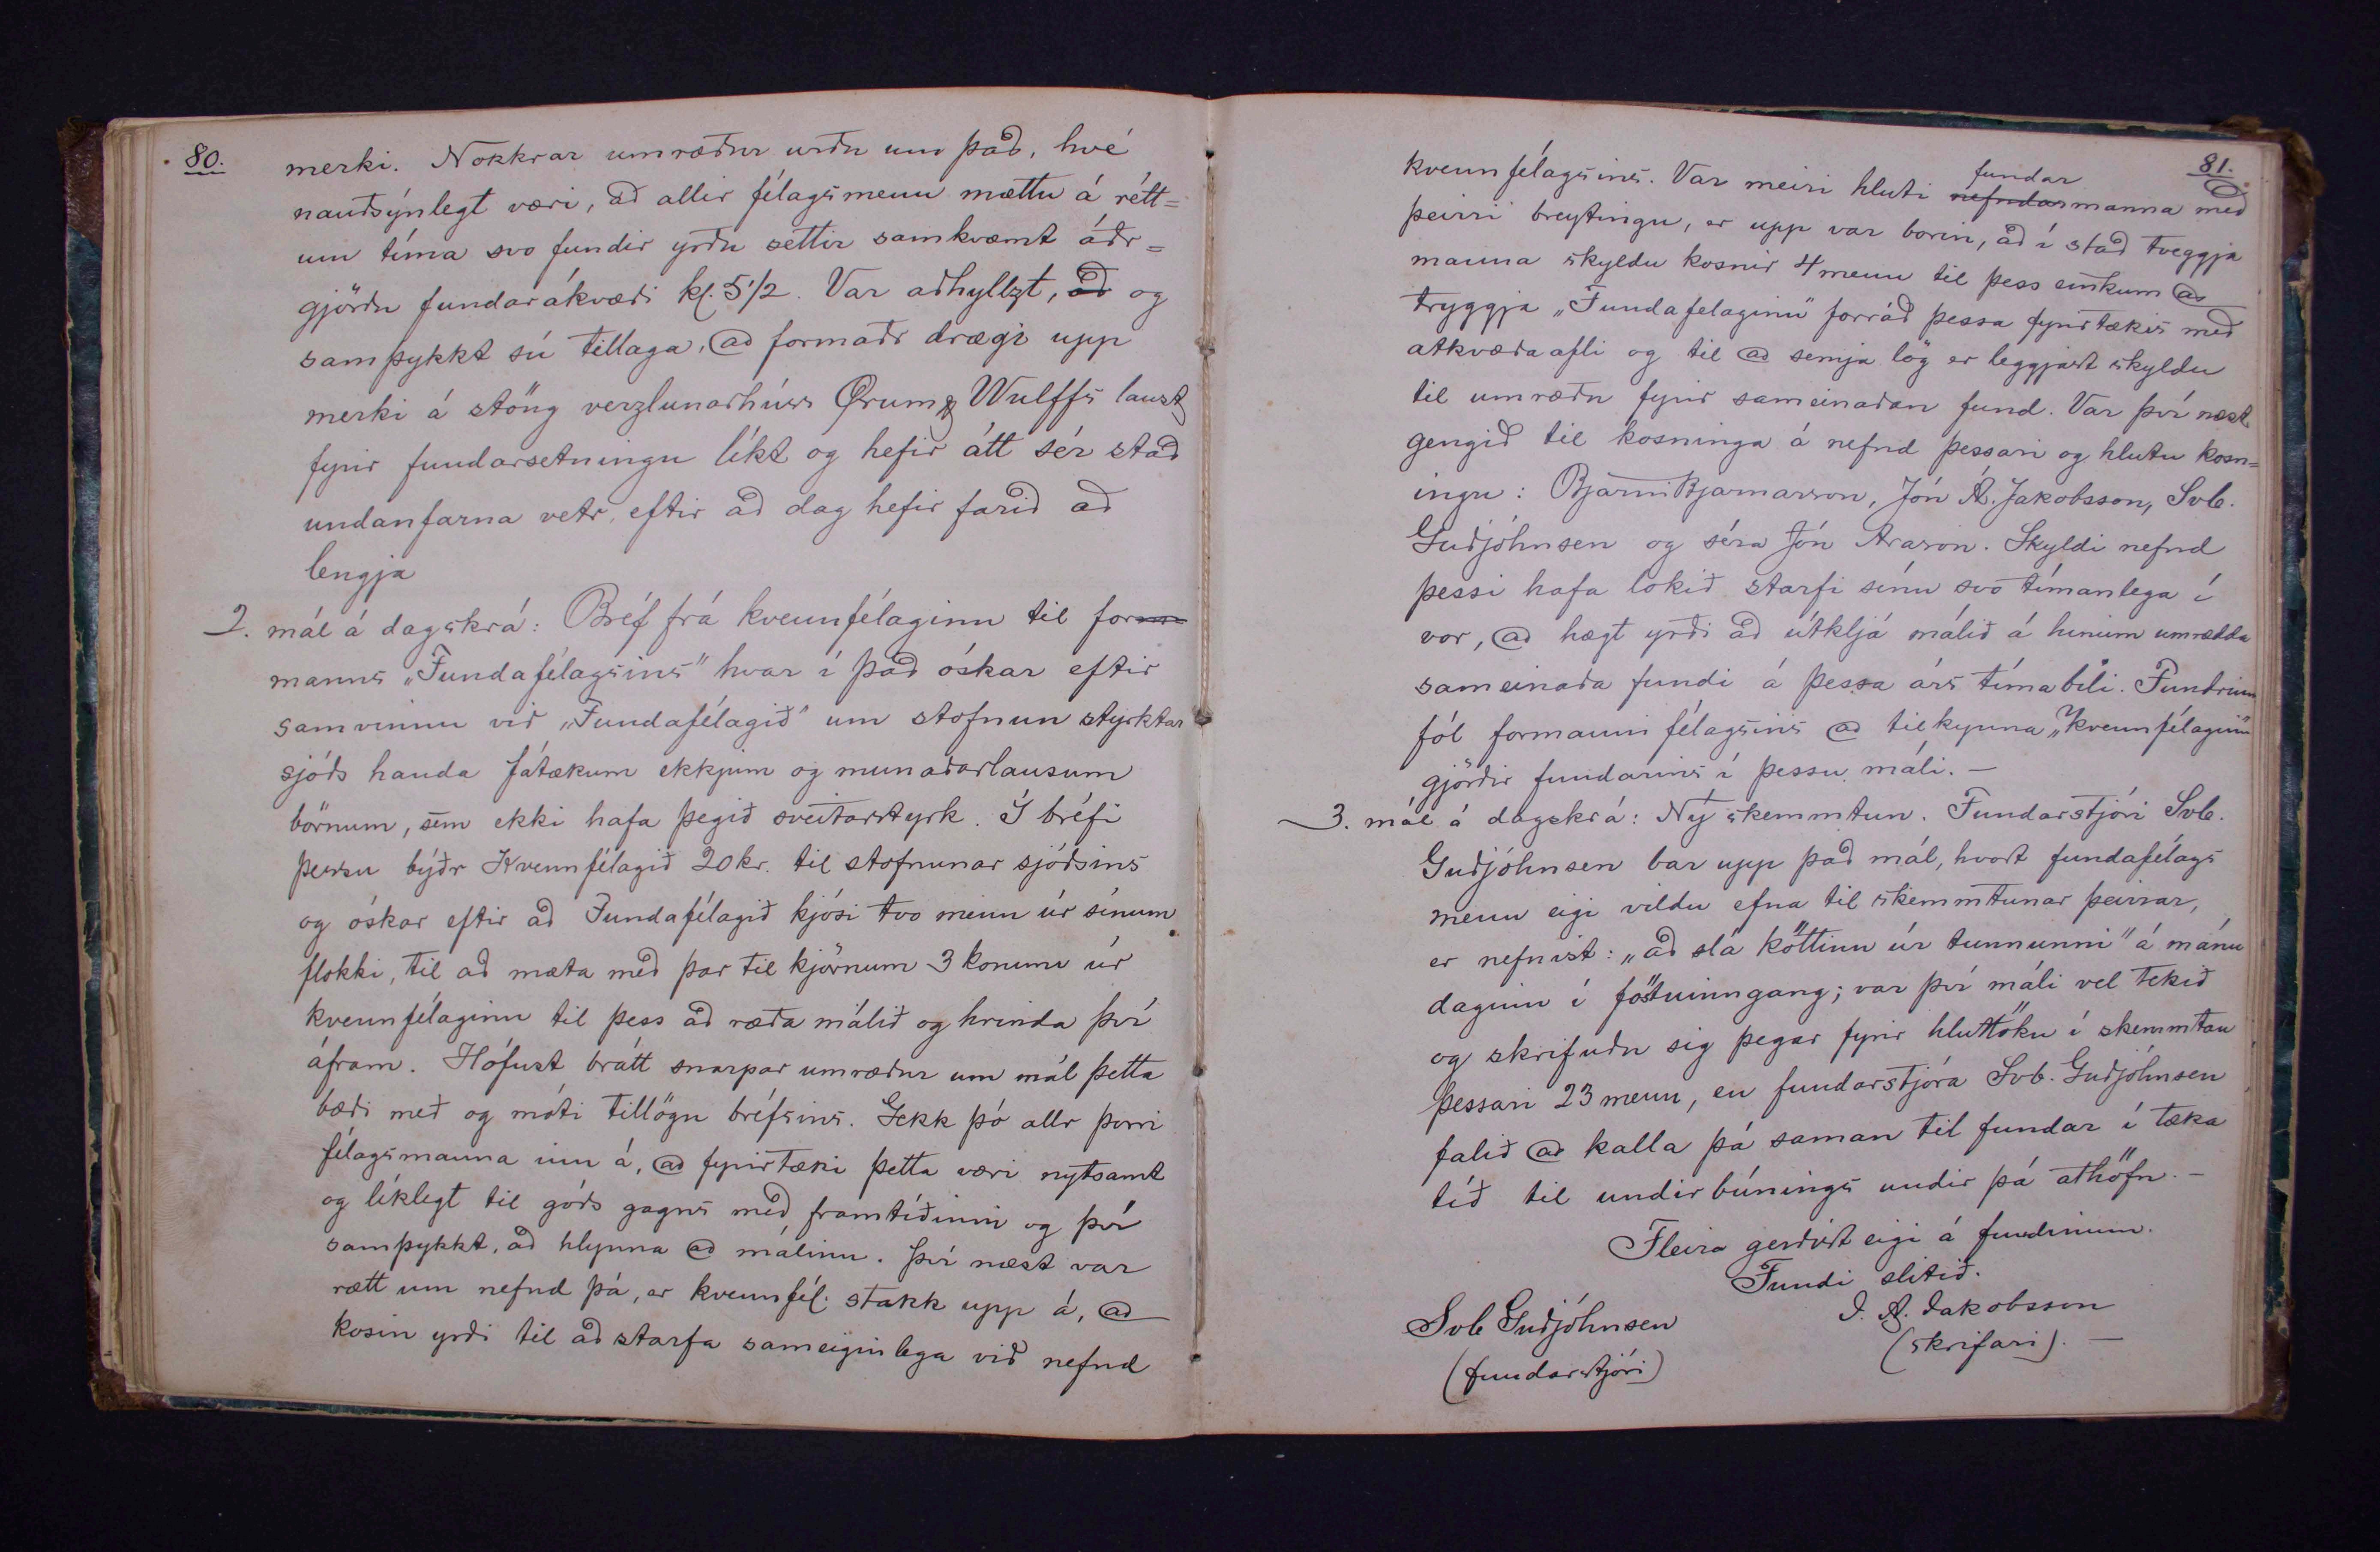 80.
merki. Nokkrar umræður urðu um það, hvé
nauðsýnlegt væri, að allir félagsmenn mættu á rétt=
um tíma svo fundir yrðu settir samkvæmt áðr=
gjörðu fundarákvæði kl. 5 1/2. Var aðhyllzt, að og
samþykkt sú tillaga, að formaðr drægi upp
merki á stöng verzlunarhúss Ørum & Wulffs laust
fyrir fundarsetningu líkt og hefir átt sér stað
undanfarna vetr, eftir að dag hefir farið að
lengja
2. mál á dagskrá: Bréf frá kvennfélaginu til for
manns „Fundafélagsins" hvar í það óskar eftir
samvinnu við „Fundafélagið" um stofnun styrktar
sjóðs handa fátækum ekkjum og munaðarlausum
börnum, sem ekki hafa þegið sveitarstyrk. Í bréfi
þessu býðr Kvennfélagið 20 kr. til stofnunar sjóðsins
og óskar eftir að Fundafélagið kjósi tvo menn úr sínum
flokki, til að mæta með þar til kjörnum 3 konum úr
kvennfélaginu til þess að ræða málið og hrinda því
áfram. Hófust brátt snarpar umræður um mál þetta
bæði með og móti tillögu bréfsins. Gekk þó allr þorri
félagsmanna inn á, að fyrirtæki þetta væri nytsamt
og líklegt til góðs gagns með framtíðinni og því
samþykkt, að hlynna að málinu. Því næst var
rætt um nefnd þá, er kvennfél. stakk upp á, að
kosin yrði til að starfa sameiginlega við nefnd
81.
kvennfélagsins. Var meiri hluti nefndar fundar manna með
þeirri breytingu, er upp var borin, að í stað tveggja
manna skyldu kosnir 4 menn til þess einkum að
tryggja „Fundafelaginu" forráð þessa fyrirtækis með
atkvæðaafli og til að semja lög er leggjast skyldu
til umræðu fyrir sameinaðan fund. Var því næst
gengið til kosninga á nefnd þessari og hlutu kosn=
ingu: Bjarni Bjarnarson, Jón A. Jakobsson, Svb.
Guðjóhnsen og séra Jón Arason. Skyldi nefnd
þessi hafa lokið starfi sínu svo tímanlega í
vor, að hægt yrði að útkljá málið á hinum umrædda
sameinaða fundi á þessa árs tímabili. Fundrinn
fól formanni félagsins að tilkynna „kvennfélaginu"
gjörðir fundarins í þessu máli. —
3. mál á dagskrá: Ný skemmtun. Fundarstjóri Svb.
Guðjóhnsen bar upp það mál, hvort fundafélags
menn eigi vildu efna til skemmtunar þeirrar,
er nefnist: „að slá köttinn úr tunnunni" á mánu
daginn í föstuinngang; var því máli vel tekið
og skrifuðu sig þegar fyrir hluttöku í skemmtan
þessari 23 menn, en fundarstjóra Svb. Guðjóhnsen
falið að kalla þá saman til fundar í tæka
tíð til undirbúnings undir þá athöfn. —
Fleira gerðist eigi á fundinum.
Fundi slitið.
Svb Guðjóhnsen
(fundarstjóri)
J. A. Jakobsson
(skrifari). —